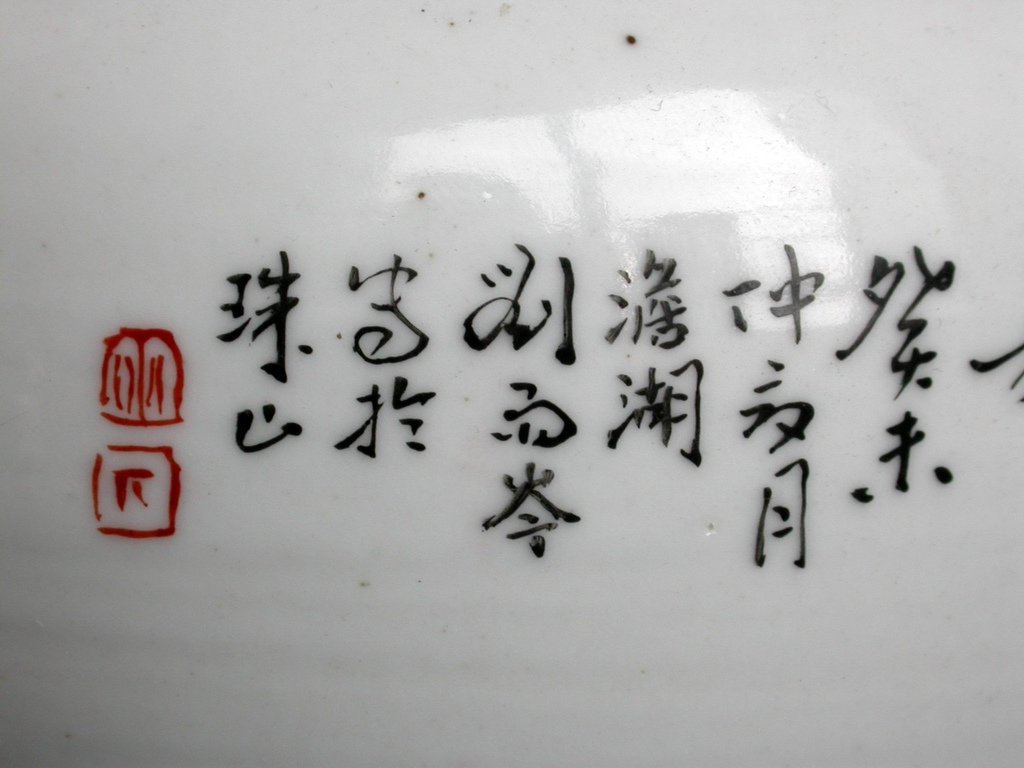 癸未
仲夏月
澹湖
劉雨岑
寫於
珠山